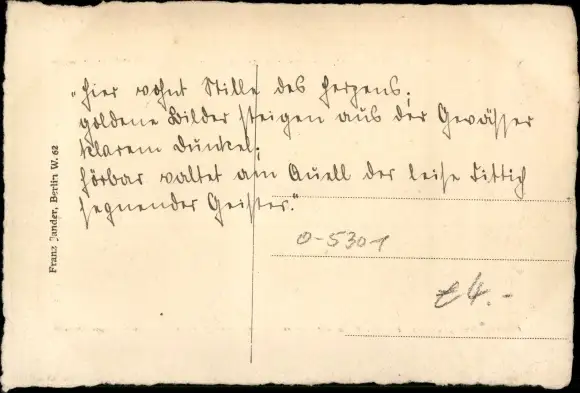 „Hier wohnt Stille des Herzens;
goldene Bilder steigen aus der Gewässer
klarem Dunkel;
hörbar waltet am Quell der leise Fittich
segnender Geister."
0-5301
€4.-
Franz Jander, Berlin W. 62